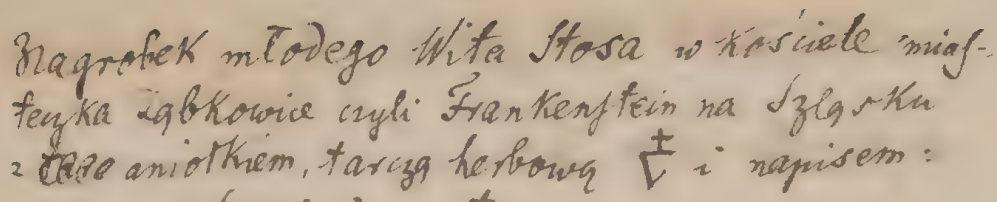 Nagrobek młodego Wita Stosa w kościele miaſ-
teczka Ząbkowice czyli Frankenſtein na Szląsku
z aniołkiem, tarczą herbową i napisem: